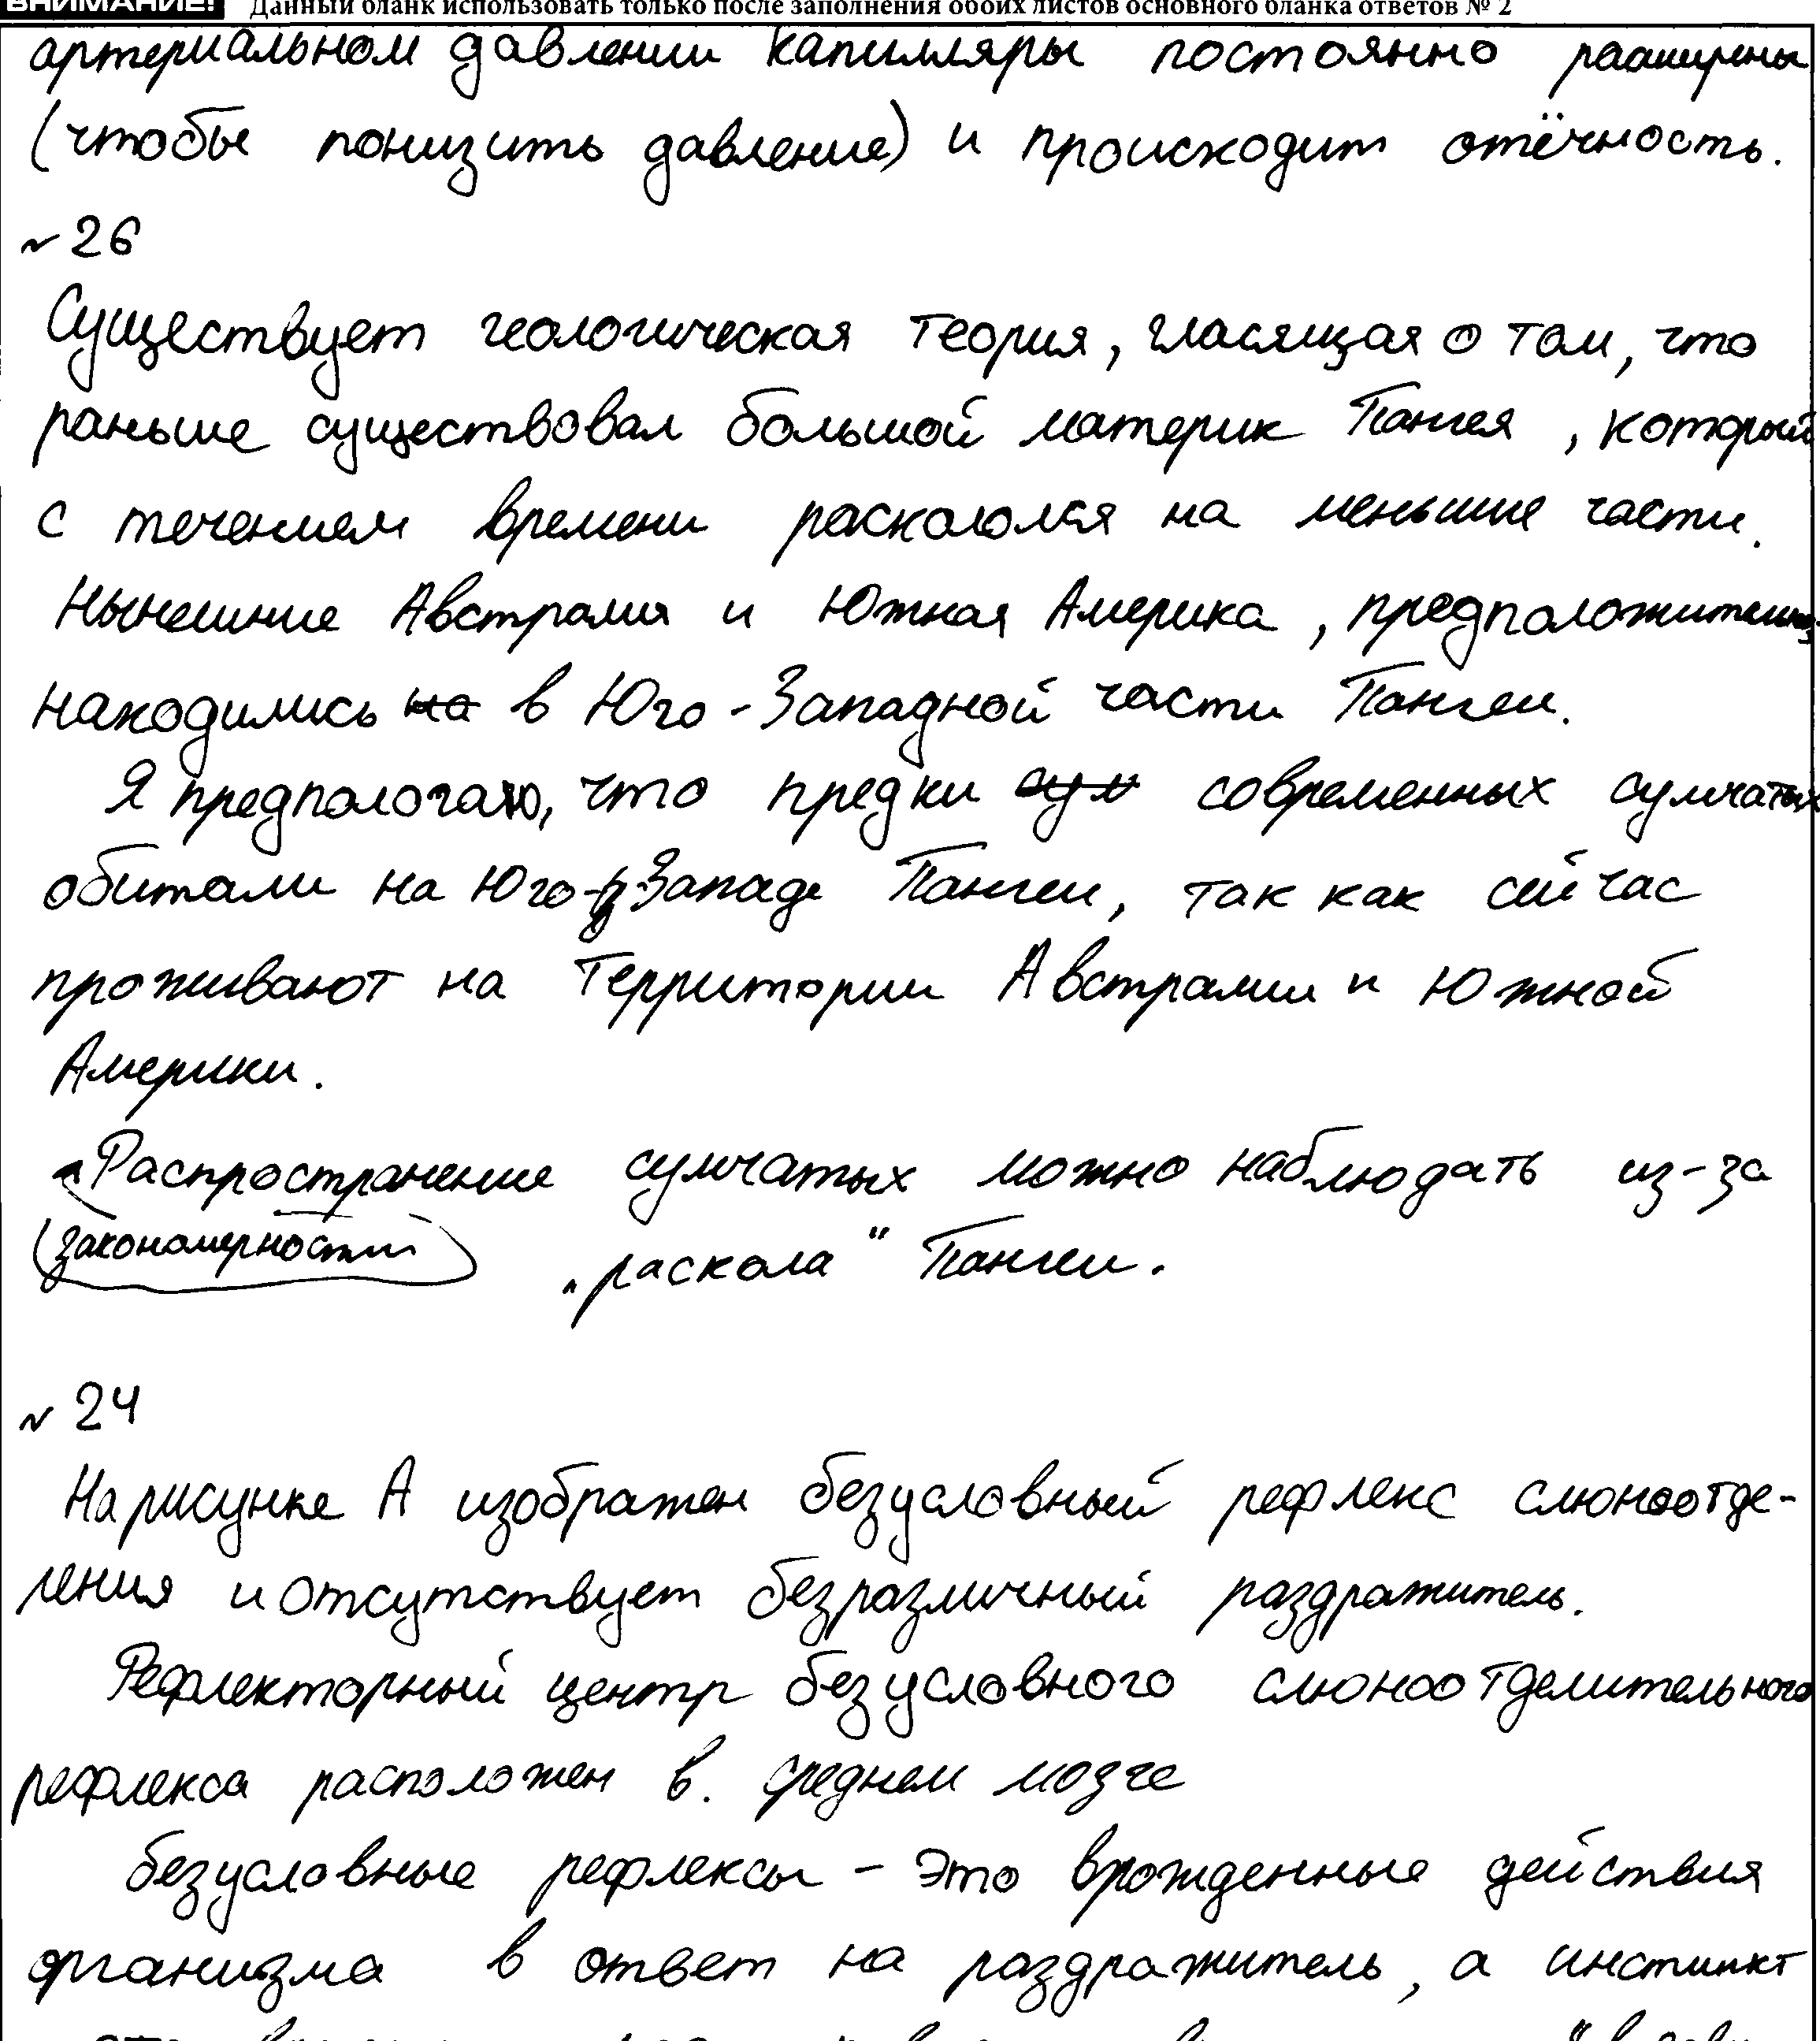 ВНИМАНИЕ! Данный бланк использовать только после заполнения обоих листов основного бланка ответов № 2
артериальном давлении капилляры постоянно расширены
(чтобы понизить давление) и происходит отёчность.
~ 26
Существует геологическая теория, гласящая о том, что
раньше существовал большой материк Пангея, который
с течением времени раскололся на меньшие части.
Нынешние Австралия и Южная Америка, предположительно,
находились на в Юго-Западной части Пангеи.
Я предпологаю, что предки сум современных сумчатых
обитали на Юго-Западе Пангеи, так как сейчас
проживают на территории Австралии и Южной
Америки.
Распространение сумчатых можно наблюдать из-за
(закономерности) „раскола" Пангеи.
~ 24
На рисунке А изображен безусловный рефлекс слюноотде-
ления и отсутствует безразличный раздражитель.
Рефлекторный центр безусловного слюноотделительного
рефлекса расположен в. среднем мозге
безусловные рефлексы - это врожденные действия
организма в ответ на раздражитель, а инстинкт